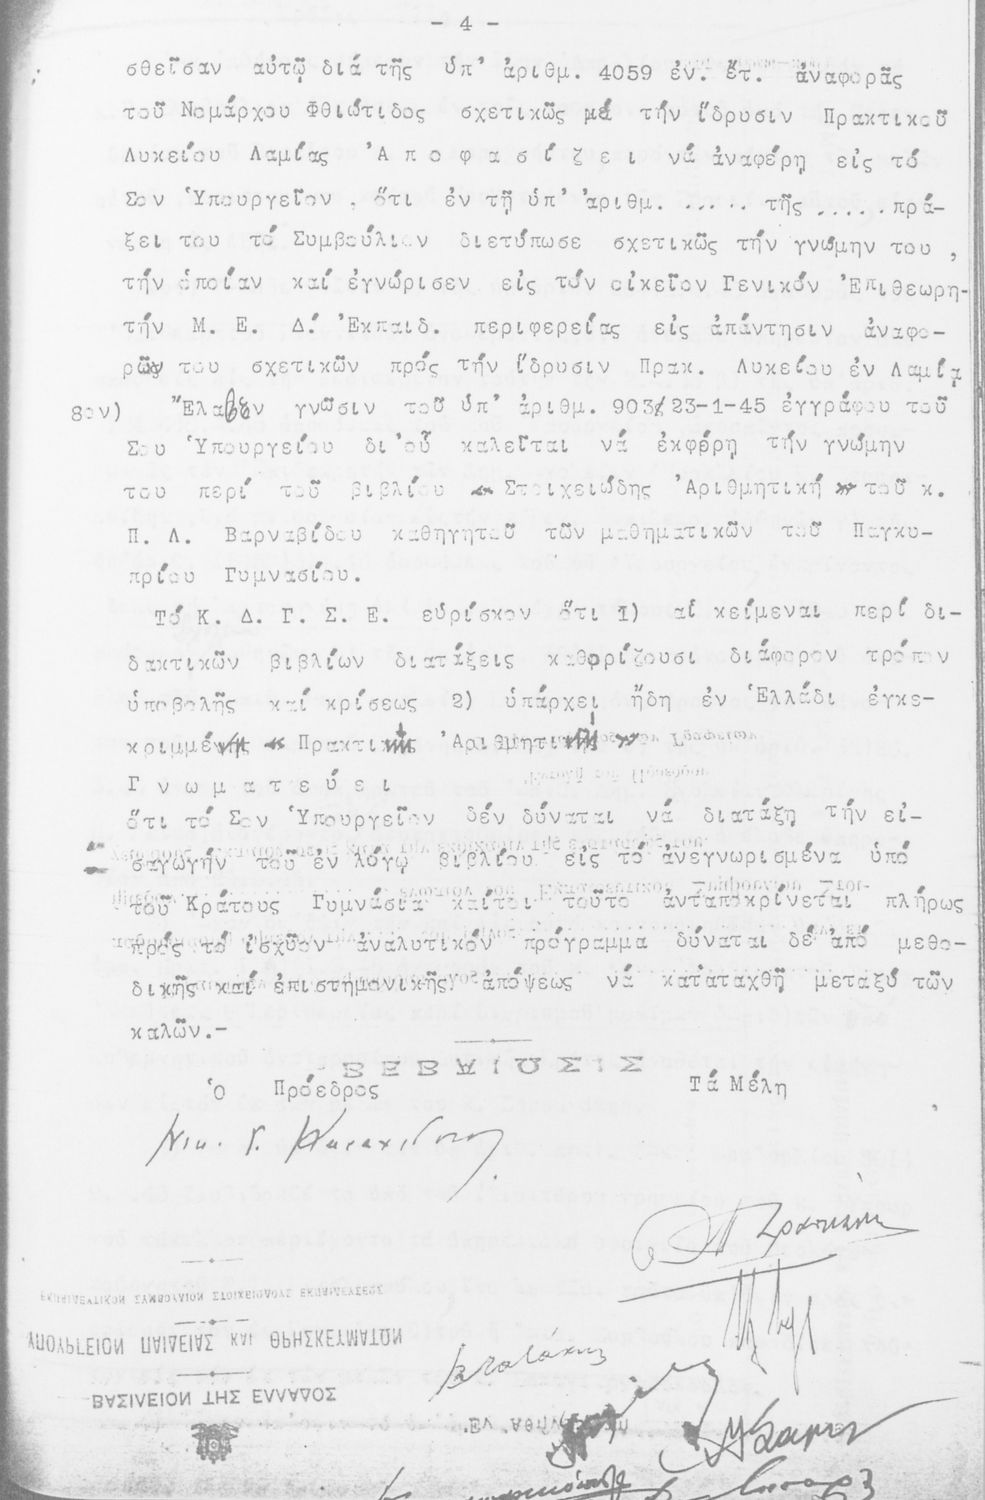 - 4 -
σθεῖσαν αὐτῷ διά τῆς ὑπ' ἀριθμ. 4059 ἐν. ἔτ. ἀναφορᾶς
τοῦ Νομάρχου Φθιώτιδος σχετικῶς μέ τήν ἵδρυσιν Πρακτικοῦ
Λυκείου Λαμίας Ἀ π ο φ α σ ί ζ ε ι νά ἀναφέρῃ εἰς τό
Σον Ὑπουργεῖον , ὅτι ἐν τῇ ὑπ' ἀριθμ. ..... τῆς ..... πρά-
ξει του τό Συμβούλιον διετύπωσε σχετικῶς τήν γνώμην του ,
τήν ὁποίαν καί ἐγνώρισεν εἰς τόν οἰκεῖον Γενικόν Ἐπιθεωρη-
τήν Μ. Ε. Δ. Ἐκπαιδ. περιφερείας εἰς ἀπάντησιν ἀναφο-
ρῶν του σχετικῶν πρός τήν ἵδρυσιν Πρακ. Λυκείου ἐν Λαμίᾳ
8ον) Ἔλαβεν γνῶσιν τοῦ ὑπ' ἀριθμ. 903/23-1-45 ἐγγράφου τοῦ
Σου Ὑπουργείου δι' οὗ καλεῖται νά ἐκφέρῃ τήν γνώμην
του περί τοῦ βιβλίου « Στοιχειώδης Ἀριθμητική » τοῦ κ.
Π. Λ. Βαρναβίδου καθηγητοῦ τῶν μαθηματικῶν τοῦ Παγκυ-
πρίου Γυμνασίου.
Τό Κ. Δ. Γ. Σ. Ε. εὑρίσκον ὅτι 1) αἱ κείμεναι περί δι-
δακτικῶν βιβλίων διατάξεις καθορίζουσι διάφορον τρόπον
ὑποβολῆς καί κρίσεως 2) ὑπάρχει ἤδη ἐν Ἑλλάδι ἐγκε-
κριμμένη « Πρακτική Ἀριθμητική »
Γ ν ω μ α τ ε ύ ε ι
ὅτι τό Σον Ὑπουργεῖον δέν δύναται νά διατάξῃ τήν εἰ-
σαγωγήν τοῦ ἐν λόγῳ βιβλίου εἰς τό ἀνεγνωρισμένα ὑπό
τοῦ Κράτους Γυμνάσια καίτοι τοῦτο ἀνταποκρίνεται πλήρως
πρός τό ἰσχῦον ἀναλυτικόν πρόγραμμα δύναται δέ ἀπό μεθο-
δικῆς καί ἐπιστημονικῆς ἀπόψεως νά καταταχθῇ μεταξύ τῶν
καλῶν.-
ΒΕΒΑΙΩΣΙΣ
Ὁ Πρόεδρος Τά Μέλη
ΕΚΠΑΙΔΕΥΤΙΚΟΝ ΣΥΜΒΟΥΛΙΟΝ ΣΤΟΙΧΕΙΩΔΟΥΣ ΕΚΠΑΙΔΕΥΣΕΩΣ
ΥΠΟΥΡΓΕΙΟΝ ΠΑΙΔΕΙΑΣ ΚΑΙ ΘΡΗΣΚΕΥΜΑΤΩΝ
ΒΑΣΙΛΕΙΟΝ ΤΗΣ ΕΛΛΑΔΟΣ